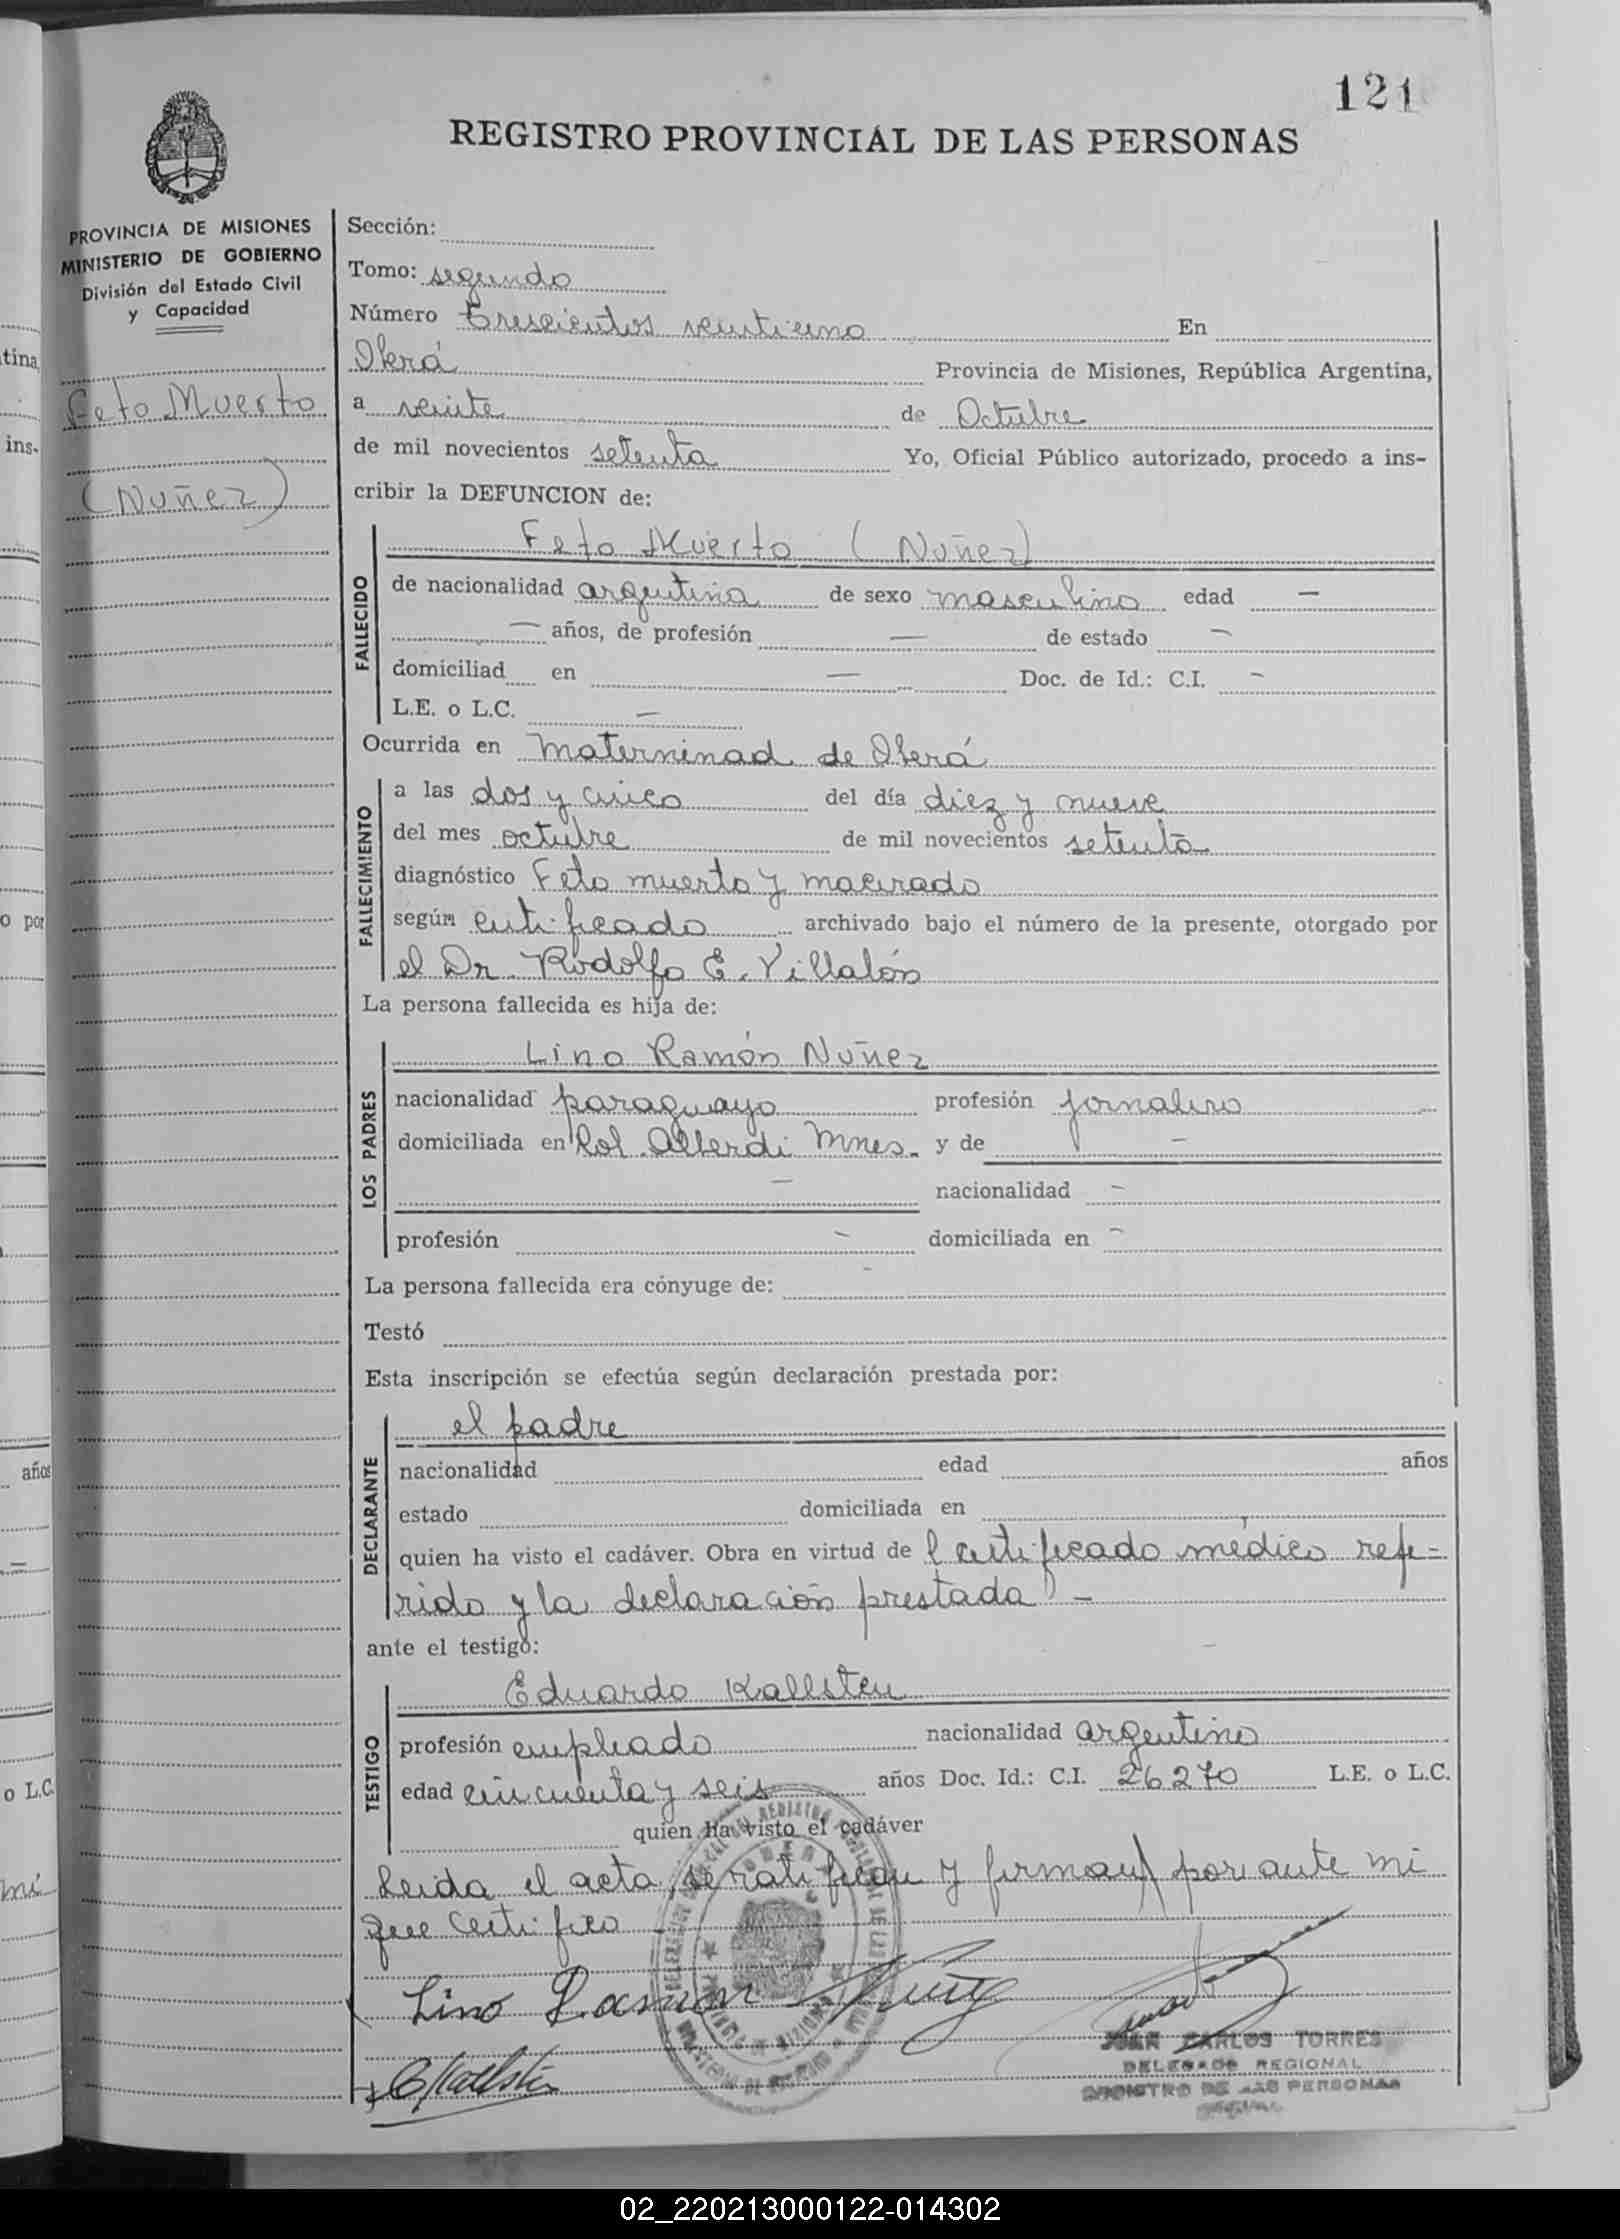 121
REGISTRO PROVINCIAL DE LAS PERSONAS
PROVINCIA DE MISIONES
MINISTERIO DE GOBIERNO
División del Estado Civil
y Capacidad
Feto Muerto
(Nuñez)
Sección:
Tomo: segundo
Número trescientos veintiuno En
Oberá Provincia de Misiones, República Argentina,
a veinte de Octubre
de mil novecientos setenta Yo, Oficial Público autorizado, procedo a ins-
cribir la DEFUNCION de:
FALLECIDO
Feto Muerto (Nuñez)
de nacionalidad argentina de sexo masculino edad —
— años, de profesión — de estado —
domiciliad en — Doc. de Id.: C.I. —
L.E. o L.C. —
Ocurrida en Materninad de Oberá
FALLECIMIENTO
a las dos y cinco del día diez y nueve
del mes octubre de mil novecientos setenta
diagnóstico Feto muerto y macerado
según certificado archivado bajo el número de la presente, otorgado por
el Dr. Rodolfo E. Villalón
La persona fallecida es hija de:
LOS PADRES
Lino Ramón Nuñez
nacionalidad paraguayo profesión jornalero
domiciliada en Col. Alberdi Mnes. y de —
— nacionalidad —
profesión — domiciliada en —
La persona fallecida era cónyuge de: —
Testó
Esta inscripción se efectúa según declaración prestada por:
DECLARANTE
el padre
nacionalidad edad años
estado domiciliada en
quien ha visto el cadáver. Obra en virtud de l certificado médico refe-
rido y la declaración prestada —
ante el testigo:
TESTIGO
Eduardo Kallsten
profesión empleado nacionalidad argentino
edad cincuenta y seis años Doc. Id.: C.I. 26270 L.E. o L.C.
quien ha visto el cadáver
Leida el acta, se ratifican y firman por ante mi
que certifico
Lino Ramon Nuñez
EKallsten
JUAN CARLOS TORRES
DELEGADO REGIONAL
REGISTRO DE LAS PERSONAS
tina,
ins-
o por
años
o L.C.
mi
02_220213000122-014302